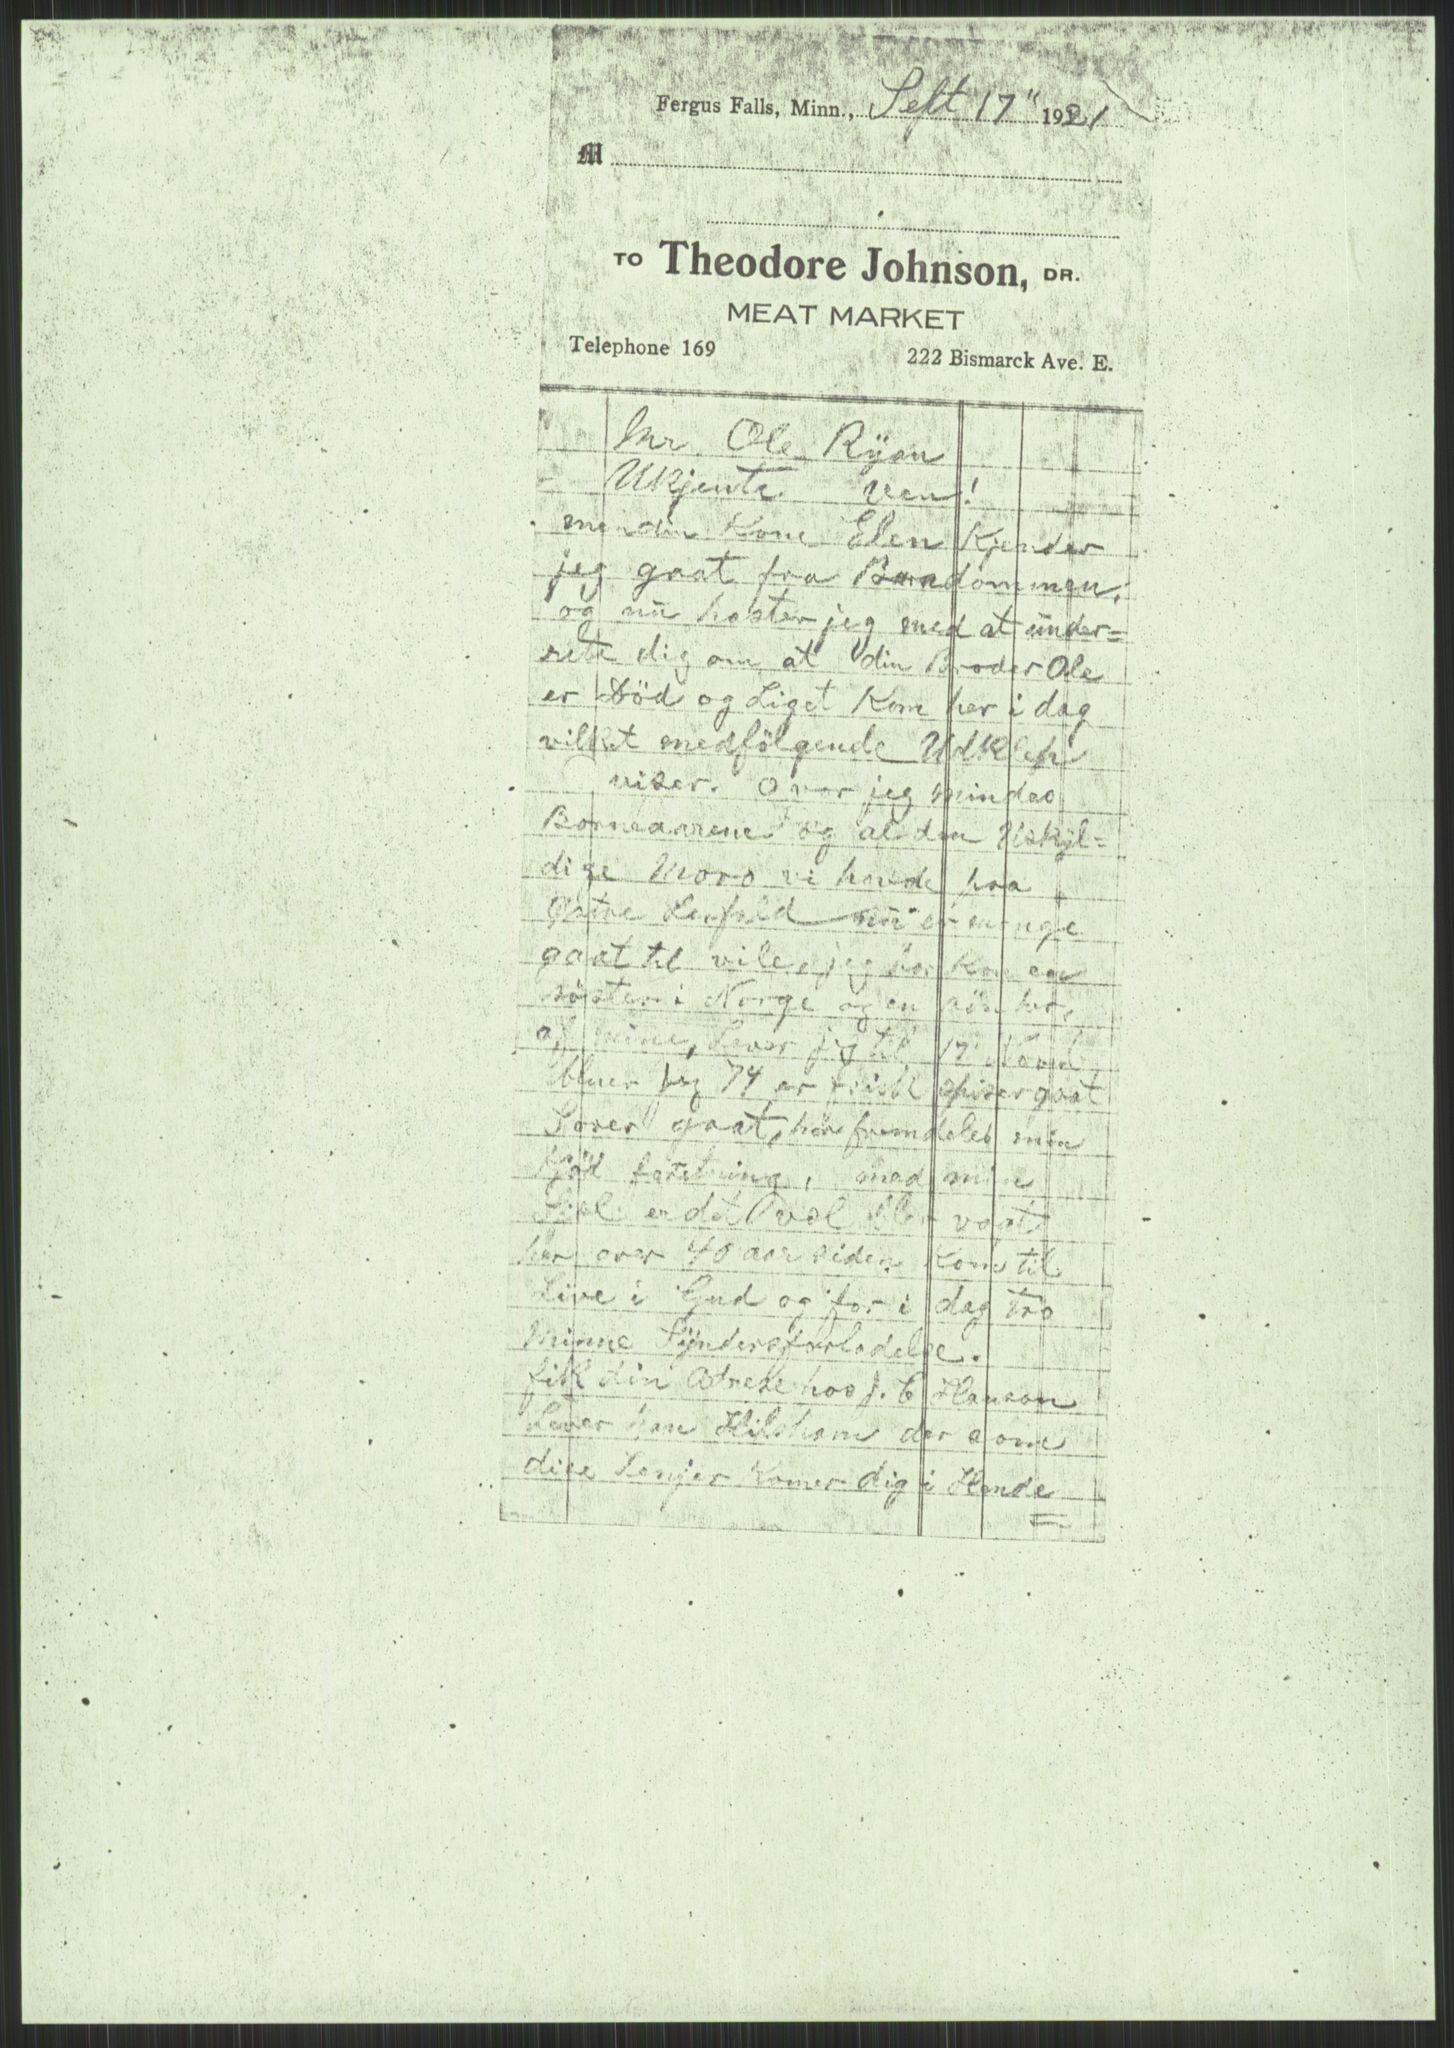 Fergus Falls, Minn., Sept 17" 1921
M
TO Theodore Johnson, DR.
MEAT MARKET
Telephone 169 222 Bismarck Ave. E.
Mr. Ole Ryan
Ukjente ven!
men din Kone Elen Kjender
jeg gaat fra Barndommen,
og nu haster jeg med at under=
rete dig om at din Broder Ole
er Död og Liget Kom her i dag
vilket medfölgende Udklip
viser. O var jeg mindes
Borneaarene og al den Uskyl=
dige Moro vi havde paa
Östre Lerfald nu er mange
gaat til vile, jeg har kun en
söster i Norge og en sön her,
af mine, Lever jeg til 17 Novb
bliver jeg 74 er frisk spiser gaat
Sover gaat, har fremdeles min
Kjöd foretning, med min
Siel er det vel blev vagt
her over 40 aar siden Kom til
Live i Gud og for i dag Tro
Minne Synders forladelse.
fik din Adrese hos J. C Hanson
Lever han Hils ham der som
dise Linjer Komer dig i Hende